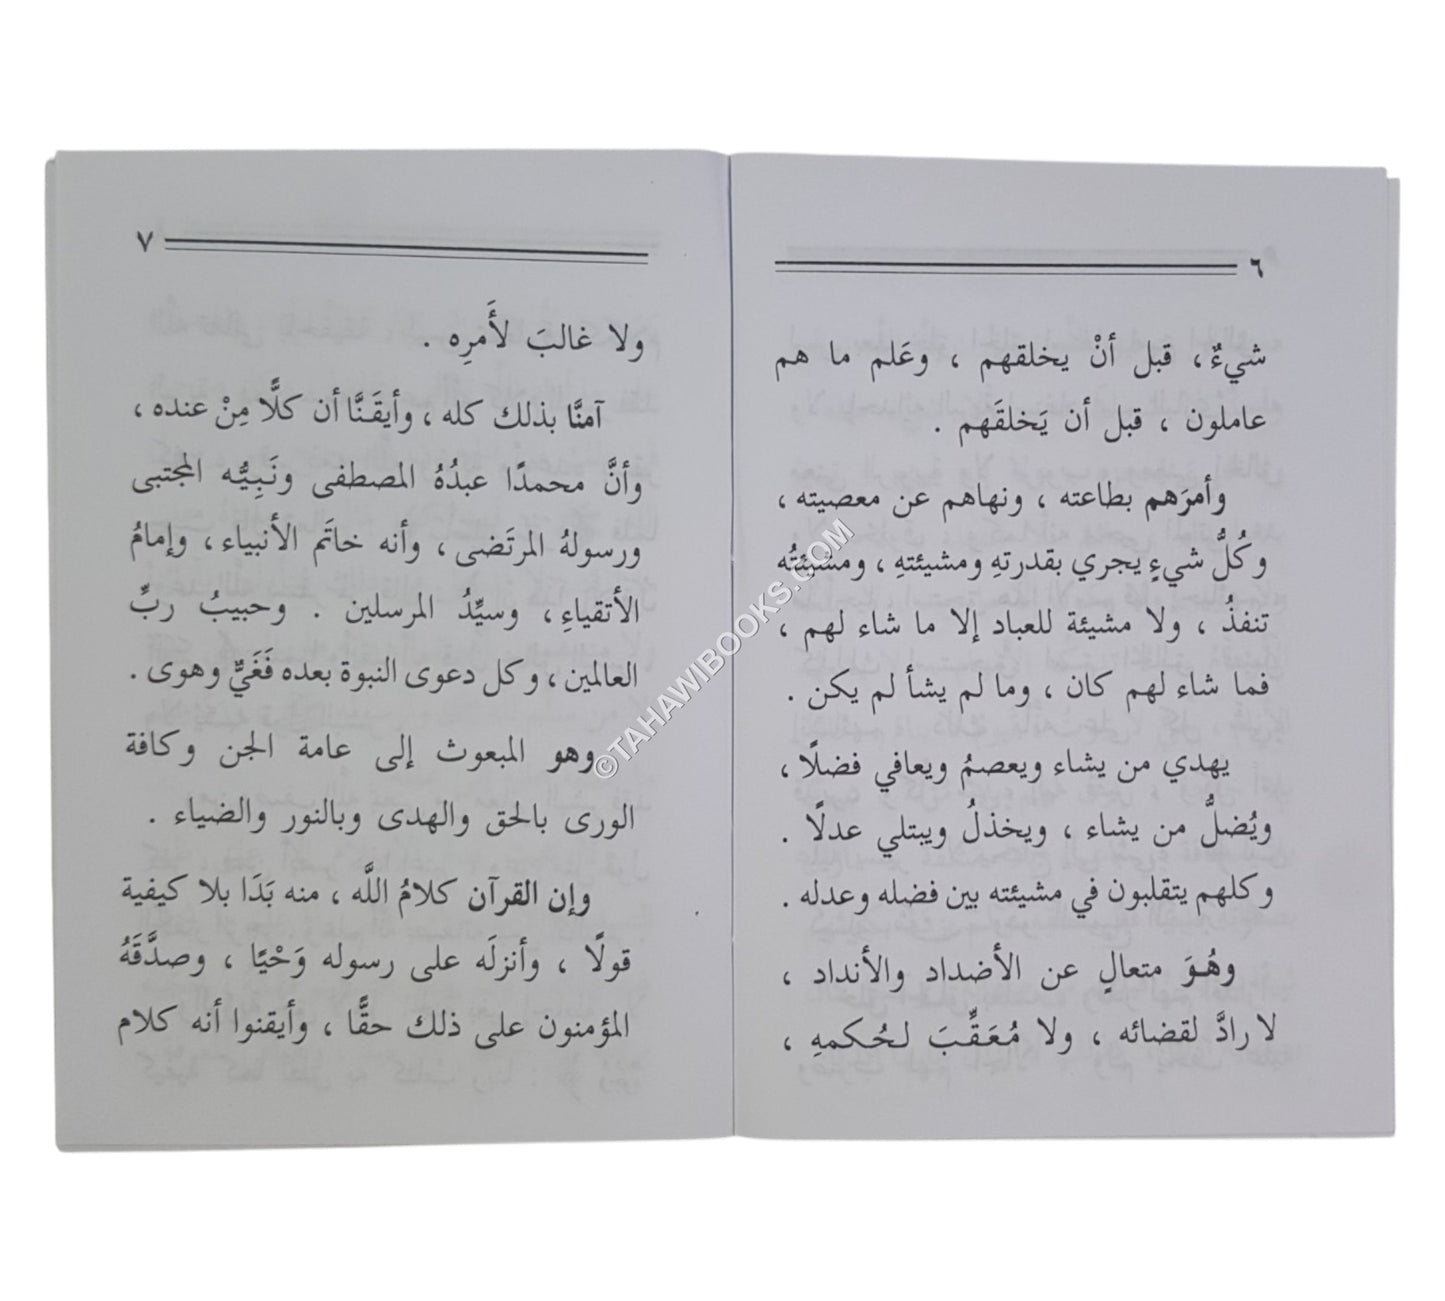 ٦
شيءٌ، قبل أنْ يخلقهم ، وعَلم ما هم
عاملون ، قبل أن يَخلقَهم .
وأمرَهم بطاعته ، ونهاهم عن معصيته ،
وكُلُّ شيءٍ يجري بقدرتهِ ومشيئتهِ ، ومشيئتُه
تنفذُ ، ولا مشيئة للعباد إلا ما شاء لهم ،
فما شاء لهم كان ، وما لم يشأ لم يكن .
يهدي من يشاء ويعصمُ ويعافي فضلًا ،
ويُضلُّ من يشاء ، ويخذلُ ويبتلي عدلًا .
وكلهم يتقلبون في مشيئته بين فضله وعدله .
وهُوَ متعالٍ عن الأضداد والأنداد ،
لا رادَّ لقضائه ، ولا مُعَقِّبَ لحُكمهِ ،
٧
ولا غالبَ لأَمرِه .
آمنَّا بذلك كله ، وأيقَنَّا أن كلًّا مِنْ عنده ،
وأنَّ محمدًا عبدُهُ المصطفى ونَبِيُّه المجتبى
ورسولهُ المرتَضى ، وأنه خاتَم الأنبياء ، وإمامُ
الأتقياءِ ، وسيِّدُ المرسلين . وحبيبُ ربِّ
العالمين ، وكل دعوى النبوة بعده فَغَيٌّ وهوى .
وهو المبعوث إلى عامة الجن وكافة
الورى بالحق والهدى وبالنور والضياء .
وإن القرآن كلامُ اللَّه ، منه بَدَا بلا كيفية
قولًا ، وأنزلَه على رسوله وَحْيًا ، وصدَّقَهُ
المؤمنون على ذلك حقًّا ، وأيقنوا أنه كلام
©TAHAWIBOOKS.COM